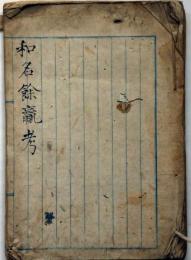 和名餘竈考